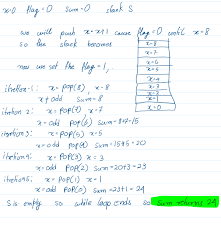 x=0 flag=0 sum=0 stack S
we will push x=x+1 cause flag=0 until x=8
so the stack becomes
x=8
x=7
x=6
x=5
x=4
x=3
x=2
x=1
x=0
now we set the flag=1,
iteration 1: x=pop(8), x=8
x≠odd sum=8
iteration 2: x=pop(7) x=7
x=odd pop(6) sum=8+7=15
iteration 3: x=pop(5) x=5
x=odd pop(4) sum=15+5=20
iteration 4: x=pop(3) x=3
x=odd pop(2) sum=20+3=23
iteration 5: x=pop(1) x=1
x=odd pop(0) sum=23+1=24
S is empty so while loop ends so sum returns 24